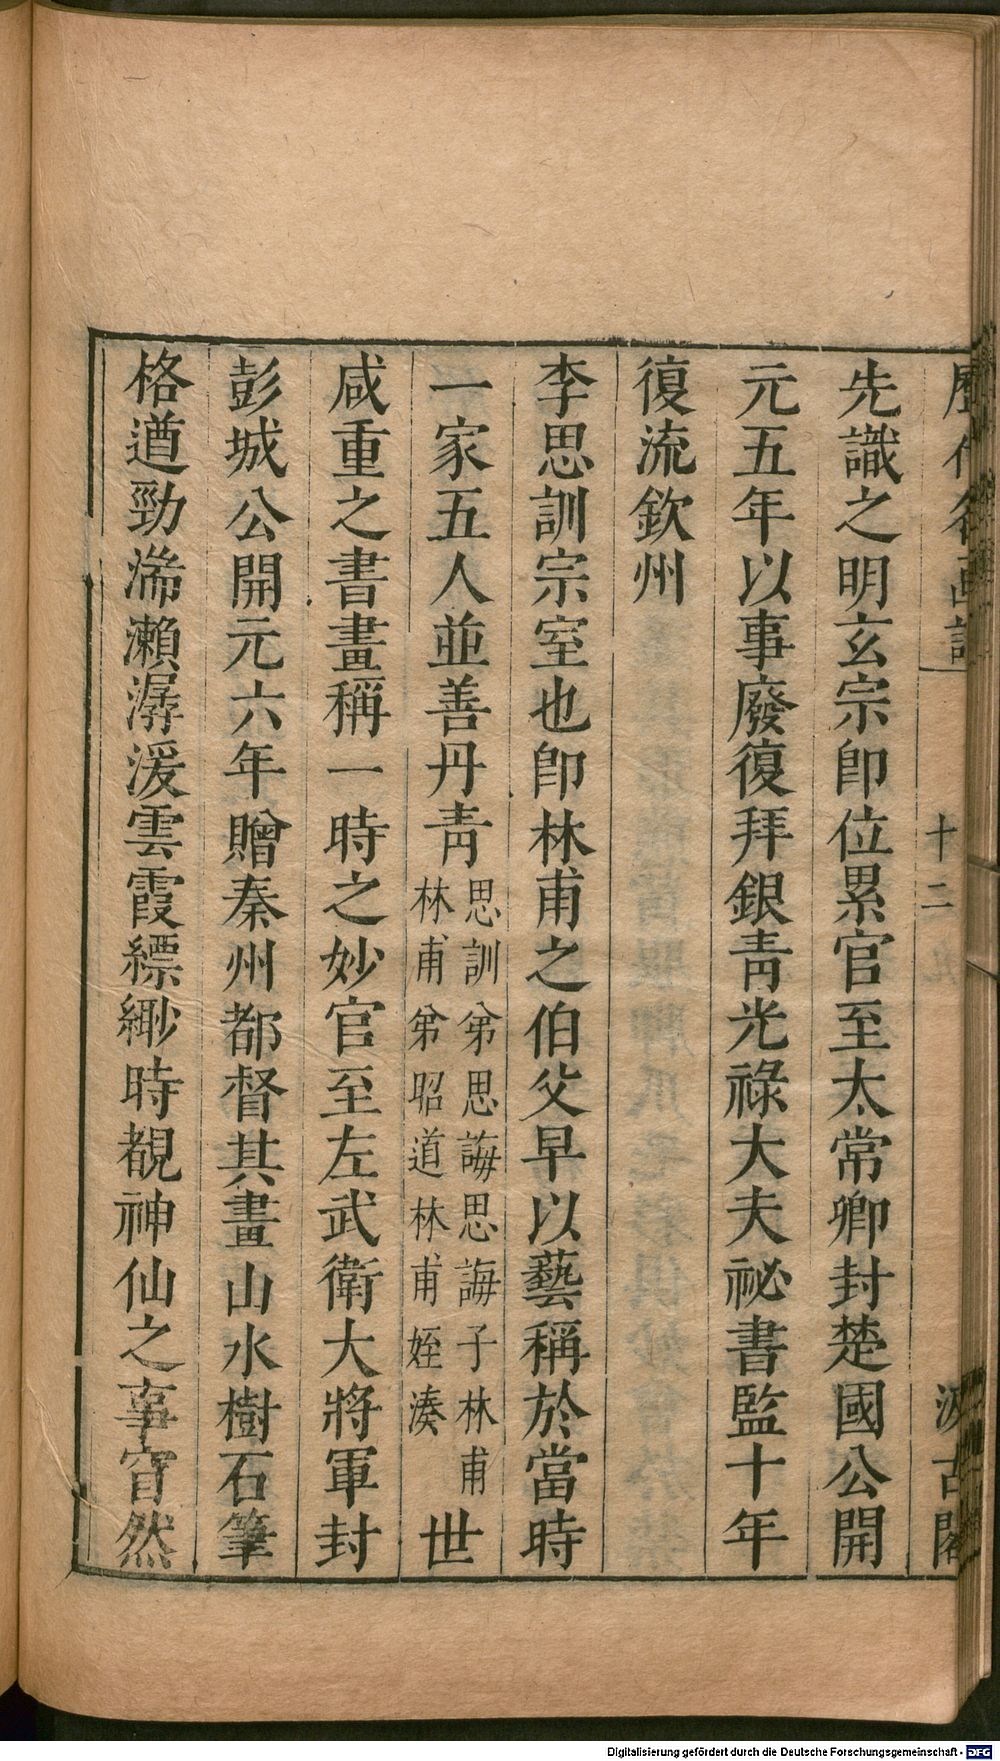 歷代名畫記
十二
汲古閣
先識之明玄宗即位累官至太常卿封楚國公開
元五年以事廢復拜銀青光祿大夫祕書監十年
復流欽州
李思訓宗室也卽林甫之伯父早以藝稱於當時
一家五人並善丹青
思訓弟思誨思誨子林甫
林甫弟昭道林甫姪湊
世
咸重之書畫稱一時之妙官至左武衛大將軍封
彭城公開元六年贈秦州都督其畫山水樹石筆
格遒勁湍瀨潺湲雲霞縹緲時覩神仙之事窅然
Digitalisierung gefördert durch die Deutsche Forschungsgemeinschaft - DFG